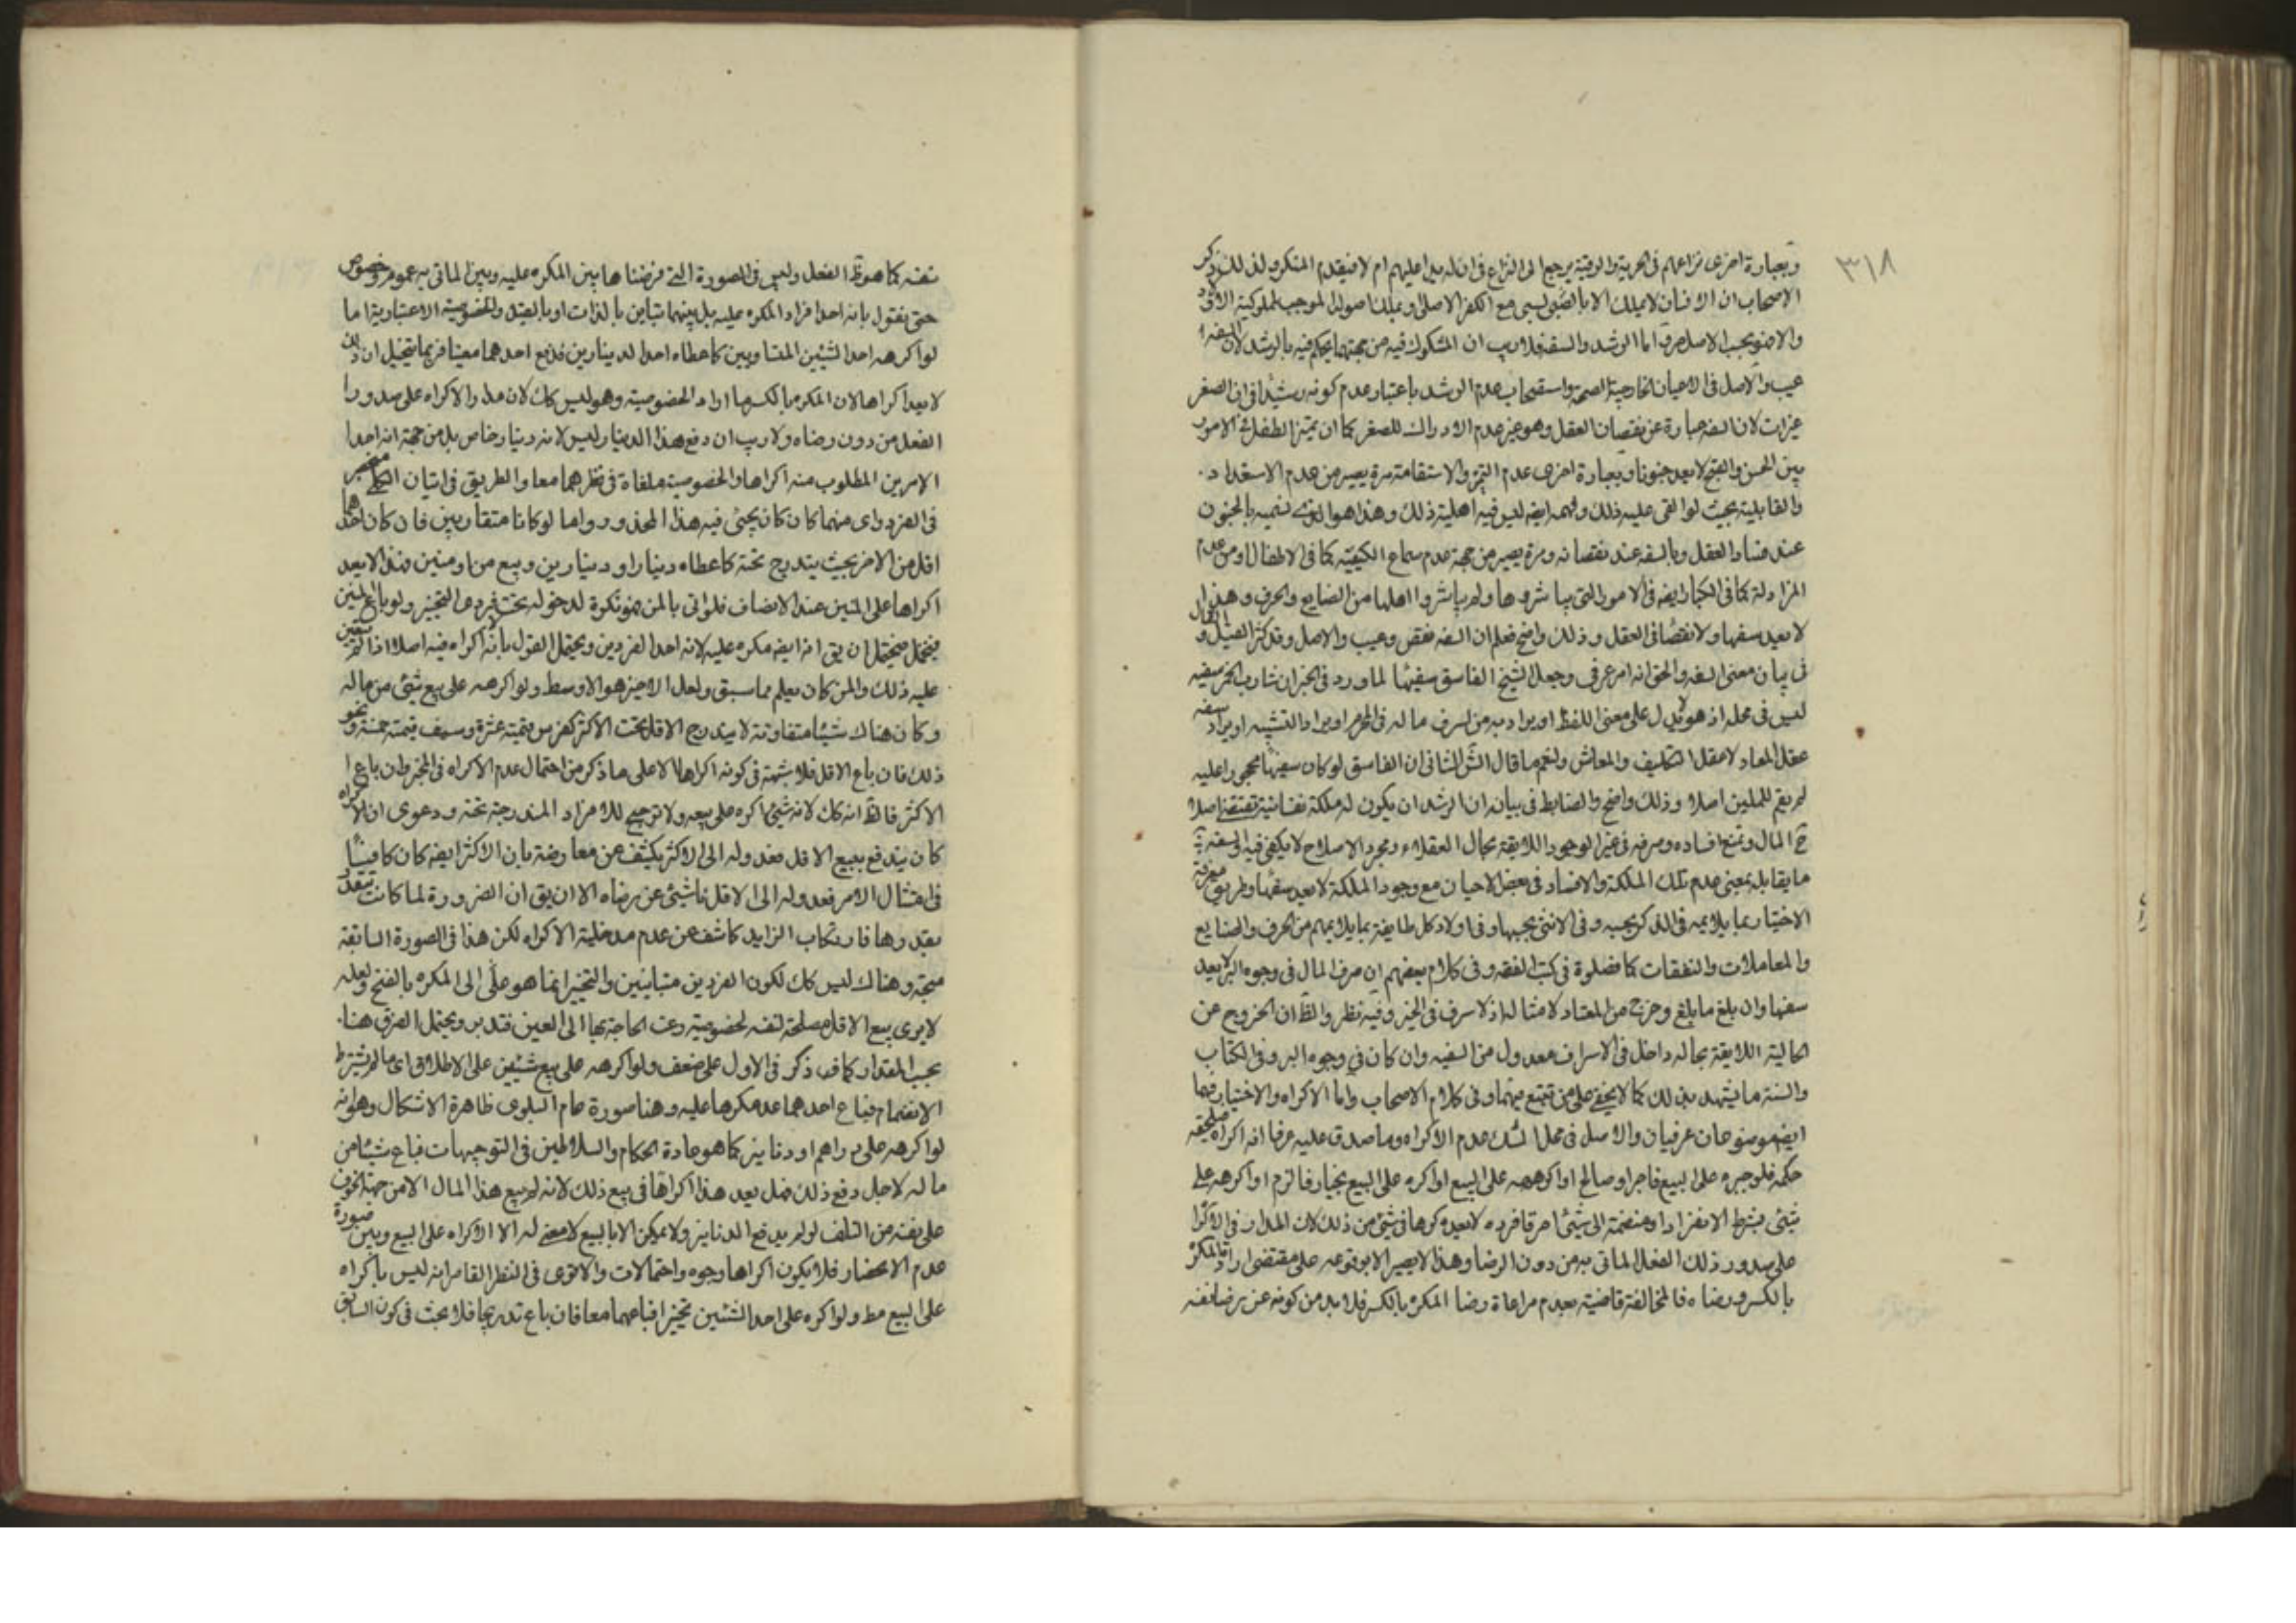 ٣١٨
وبعبارة اخرى نزاعهم فى الحرية والرقية يرجع الى النزاع فى ان له يدا عليهم ام لا فيقدم المنكر ولذلك ذكر
الاصحاب ان الانسان لا يملك الا بالضى لسبى مع الكفر الاصلى وتملك اصوله الموجب لمملوكية الاولاد
والاصل فى الاعيان الخارجية الصحة واستصحاب عدم الرشد باعتبار عدم كونه رشيدا فى ان الصغر
غيرات لان السفه عبارة عن نقصان العقل وهو غير عدم الادراك للصغر كما ان تميز الطفل فى الامور
بين الحسن والقبح لا يعد جنونا وبعبارة اخرى عدم التميز والاستقامة مرة يصير من عدم الاستعداد
والقابلية بحيث لو القى عليه ذلك وفهمه ايضه ليس فيه اهلية ذلك وهذا هو الذى نسميه بالجنون
عند فساد العقل وبالسفه عند نقصانه ومرة يصير من جهة عدم سماع الكيفية كما فى الاطفال او من عدم
المزاولة كما فى الكبار ايضه فى الامور التى يباشروها ولم يباشروا اهلها من الصنايع والحرف وهذا
لا يعد سفها ولا نقصا فى العقل وذلك واضح فعلم ان السفه نقص وعيب والاصل وقد كثر القيل و القال
فى بيان معنى السفه والحق انه امر عرفى وجعل الشيخ الفاسق سفيها لما ورد فى الخبر ان شارب الخمر سفيه
ليس فى محله اذ هو لا يدل على معنى اللفظ او يراد به من لسرف ماله فى المحرم او يراد التشبيه او يراد سفه
عقل المعاد لا عقل التكليف والمعاش ونعم ما قال الش الثانى ان الفاسق لو كان سفيها محجورا عليه
لم يقم للمسلمين اصلا وذلك واضح والضابط فى بيانه ان الرشد ان يكون له ملكة نفسانية تقتضى اصلا
ح المال وتمنع افساده وصرفه فى غير الوجوه اللايقة بحال العقلاء ومجرد الاصلاح لا يكفى فيه والسفه
ما يقابله بمعنى عدم تلك الملكة والافساد فى بعض الاحيان مع وجود الملكة لا يعد سفها وطريق معرفة
الاختبار بما يلايمه فى الذكر بحسبه وفى الانثى بحسبها وفى اولاد كل طايفة بما يلايمهم من الحرف والصنايع
والمعاملات والنفقات كما فصلوه فى كتب الفقه وفى كلام بعضهم ان صرف المال فى وجوه البر لا يعد
سفها وان بلغ ما بلغ وخرج من المعتاد لامثاله اذ لا سرف فى الخير وفيه نظر والظ ان الخروج عن
الحالية اللايقة بحاله داخل فى الاسراف معدول من السفيه وان كان فى وجوه البر وفى الكتاب
والسنة ما يشهد بذلك كما لا يخفى على من تتبع فيهما وفى كلام الاصحاب واما الاكراه والاختيار فهما
ايضه موضوعان عرفيان والاصل فى محل الشك عدم الاكراه وما صدق عليه عرفا انه اكراه يلحقه
حكمه فلو جبره على البيع فاجر او صالح او اكرهه على البيع او اكره على البيع بخيار فالتزم او اكرهه على
شيئ بشرط الانفراد او منضمة الى شيئ اخر فافرده لا يعد مكرها فى شيئ من ذلك لان المدار فى الاكراه
على صدور ذلك الفعل الماتى به من دون الرضا وهذا لا يصير الا بوقوعه على مقتضى ارادة المكره
بالكسر ورضاه فالمخالفة قاضية بعدم مراعاة رضا المكره بالكسر فلا بد من كونه عن رضا نفسه
نفسه كما هو ظ الفعل وليس فى الصورة التى فرضناها بين المكره عليه وبين الماتى به عموم وخصوص
حتى نقول بانه احد افراد المكره عليه بل بينهما تباين بالذات او بالقيد والخصوصية الاعتبارية اما
لو اكرهه احد الشيئين المتساويين كاعطاء احد الدينارين فدفع احدهما معينا فربما يتخيل ان ذلك
لا يعد اكراها لان المكره بالكسر ما اراد الخصوصية وهو ليس كك لان مدار الاكراه على صدور
الفعل من دون رضاه ولا ريب ان دفع هذا الدينار ليس لانه دينار خاص بل من جهة انه احد
الامرين المطلوب منه اكراها والخصوصية ملغاة فى نظرهما معا والطريق فى اتيان الكلى منحصر
فى الفرد واى منهما كان كان يجئ فيه هذا المحذور واما لو كانا متقاربين فان كان احدهما
اقل من الاخر بحيث يندرج تحته كاعطاء دينار او دينارين وبيع من او منين فذا لا يعد
اكراها على المنين عند الانصاف فلو اتى بالمن فهو مكره لدخوله تحت فردى التخيير ولو باع المنين
فيحتمل ان يق انه ايضه مكره عليه لانه احد الفردين ويحتمل القول بانه لا اكراه فيه اصلا اذا لم يتعين
عليه ذلك والمن كان يعلم مما سبق ولعل الاخير هو الاوسط ولو اكرهه على بيع شيئ من ماله
وكان هناك شيئا متفاوتة لا يندرج الاقل تحت الاكثر كفرس قيمته عشرة وسيف قيمته خمسة ونحو
ذلك فان باع الاقل فلا شبهة فى كونه اكراها الا على ما ذكر من احتمال عدم الاكراه فى المخير وان باع
الاكثر فالظ انه كك لانه شيئ اكره على بيعه ولا ترجيح للافراد المندرجة تحته ودعوى ان الاكراه
كان يندفع ببيع الاقل فعدوله الى الاكثر يكشف عن معارضة بان الاكثر ايضه كان كافيا
فى امتثال الامر فعدوله الى الاقل ناشئ عن رضاه الا ان يق ان الضرورة لما كانت تتقدر
بقدرها فارتكاب الزايد كاشف عن عدم مدخلية الاكراه لكن هذا فى الصورة السابقة
متجه وهناك ليس كك لكون الفردين متباينين والتخيير انما هو على الى المكره بالفتح ولعله
لا يرى بيع الاقل مصلحة لنفسه لخصوصية دعت الحاجة بها الى العين فتدبر ويحتمل الفرق هنا
بحسب المقدار كما ذكر فى الاول على ضعف ولو اكرهه على بيع شيئين على الاطلاق اى ما لم يشترط
الانضمام فباع احدهما عد مكرها عليه وهنا صورة عام البلوى ظاهرة الاشكال وهو انه
لو اكرهه على دراهم او دنانير كما هو عادة الحكام والسلاطين فى التوجيهات فباع شيئا من
ماله لاجل دفع ذلك فهل يعد هذا اكراها فى بيع ذلك لانه لم يبع هذا المال الا من جهة الخوف
على نفسه من التلف لو لم يدفع الدنانير ولا يمكن الا بالبيع لا معنى له الا الاكراه على البيع وبين صورة
عدم الاحضار فلا يكون اكراها وجوه واحتمالات والاقوى فى النظر القاصر انه ليس باكراه
على البيع مط ولو اكره على احد الشيئين تخييرا فباعهما معا فان باع تدريجا فلا بحث فى كون السابق